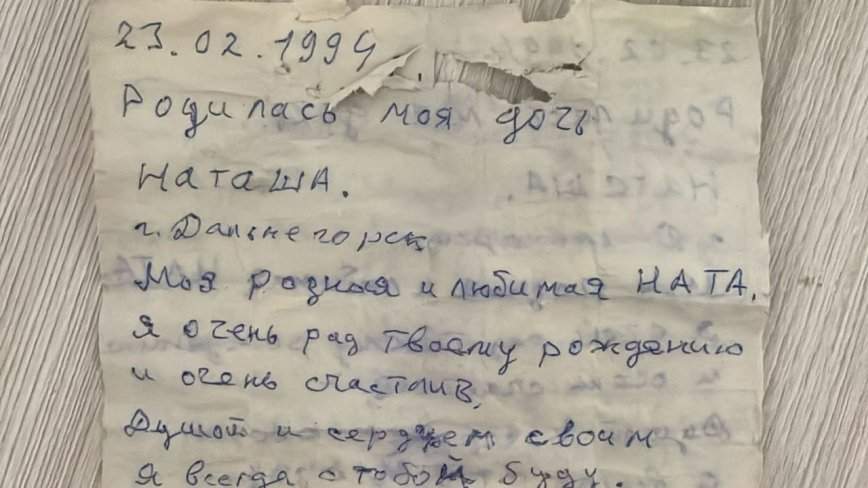 23.02.1994
Родилась моя дочь
Наташа.
г. Дальнегорск
Моя родная и любимая НАТА.
Я очень рад твоему рождению
и очень счастлив.
Душой и сердцем своим
я всегда с тобой буду.